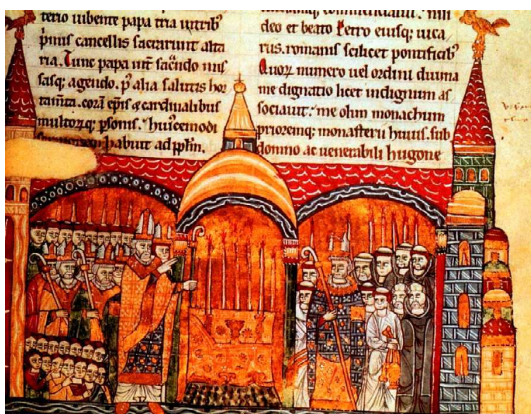 terio iubente papa tria ultrib;
primis cancellis sacrarunt alta
ria. Tunc papa int sacndo mis
sasq; agendo. p; alia salutis hor
tam̄ta. corā ep̄is & cardinalibus
multorq; psonis. huiꝰcemodi
habuit ad pp̄lm.
deo et beato petro eiusq; uica
rus. romanis scilicet pontificib;
Quoꝝ numero uel ordini diuina
me dignatio licet indignum as
sociauit. me olim monachum
prioremq; monasterii huius. sub
domno ac uenerabili hugone